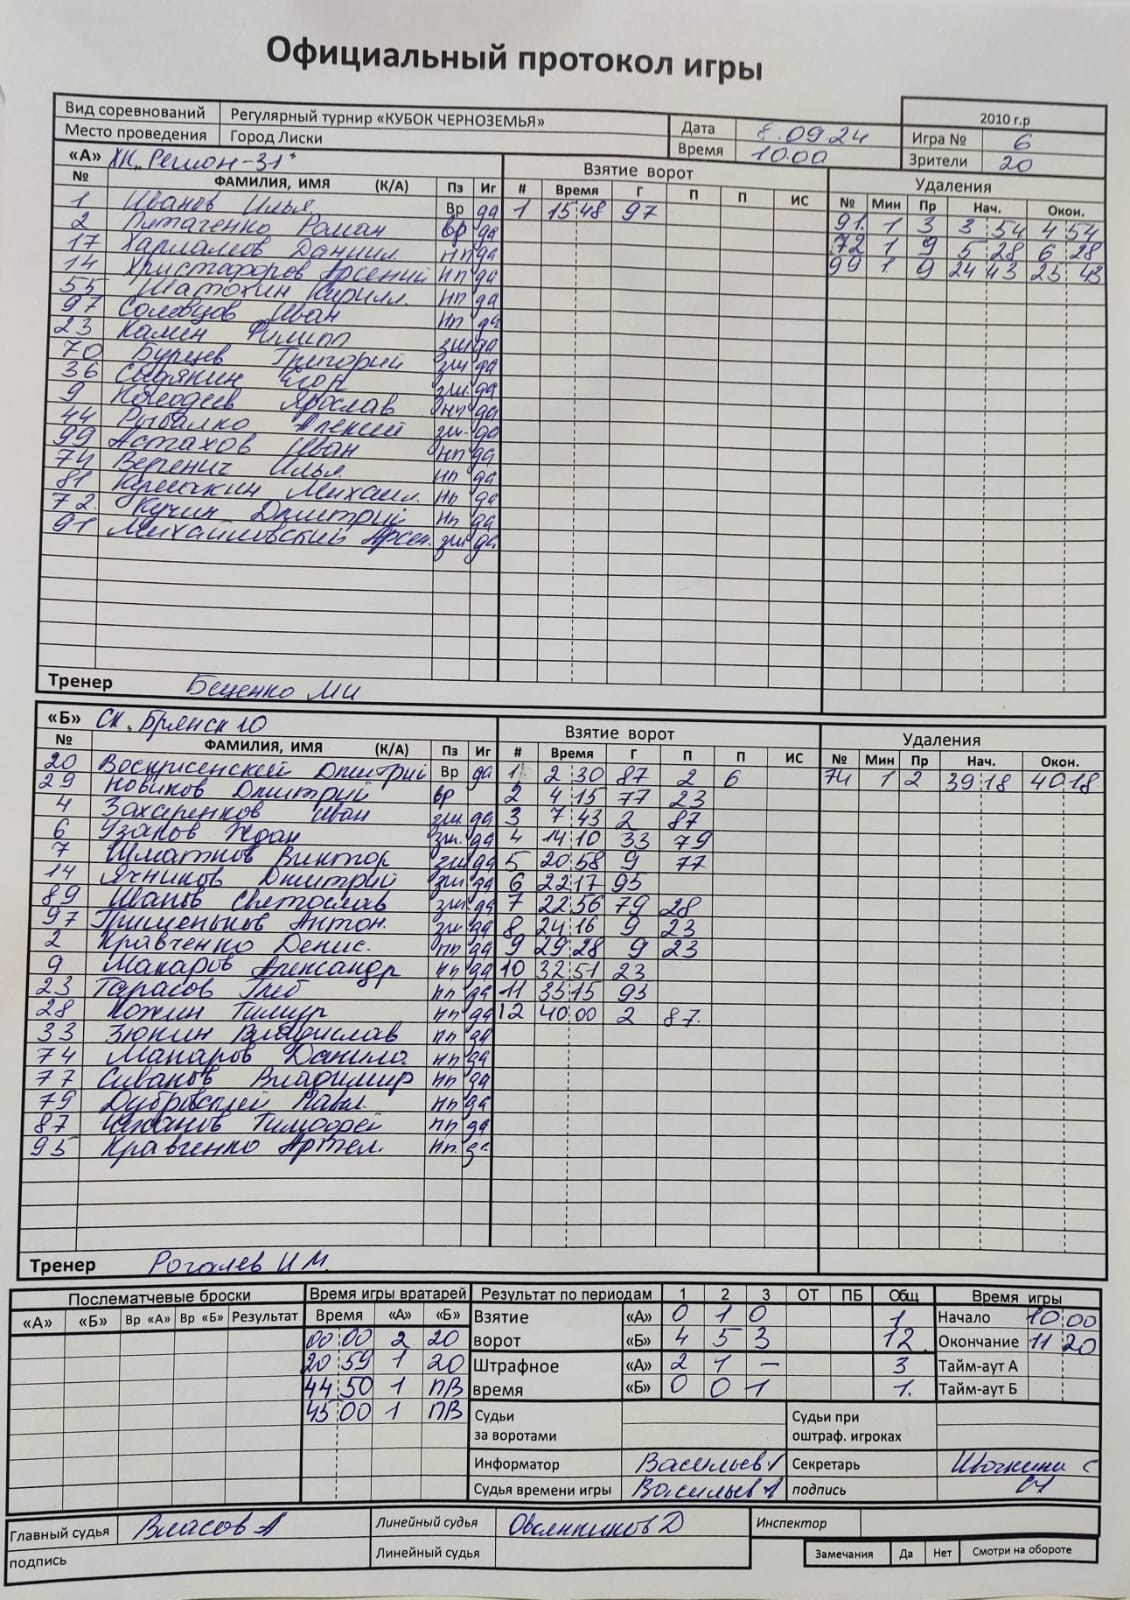 Официальный протокол игры
Вид соревнований Регулярный турнир «КУБОК ЧЕРНОЗЕМЬЯ» 2010 г.р
Место проведения Город Лиски Дата 8.09.24 Игра № 6
Время 10.00 Зрители 20
«А» ХК „Регион-31" Взятие ворот Удаления
№ ФАМИЛИЯ, ИМЯ (К/А) Пз Иг # Время Г П П ИС № Мин Пр Нач. Окон.
1 Иванов Илья Вр да 1 15 48 97 91 1 3 3 54 4 54
2 Роман вр да 72 1 9 5 28 6 28
17 Харламов Даниил нп да 99 1 9 24 43 25 43
14 Христафоров Арсений нп да
55 Шатохин Кирилл. нп да
97 Соловцов Иван нп да
23 Камен Филипп зщ да
70 Бурцев Григорий зщ да
36 Егор зщ. да
9 Ярослав нп да
44 Рыбалко Алексей зщ. да
99 Астахов Иван нп да
74 Веренич Илья нп да
81 Михаил. нп да
72. Кучин Дмитрий нп да
91 Михайловский Арсен. зщ да
Тренер Беценко МИ
«Б» СК. Брянск 10 Взятие ворот Удаления
№ ФАМИЛИЯ, ИМЯ (К/А) Пз Иг # Время Г П П ИС № Мин Пр Нач. Окон.
20 Воскресенский Дмитрий Вр да 1 2 30 87 2 6 74 1 2 39 18 40 18
29 Новиков Дмитрий вр 2 4 15 77 23
4 Захаренков Иван зщ да 3 7 43 2 87
6 Узанов Ждан зщ. да 4 14 10 33 79
7 Шматков Виктор зщ да 5 20 58 9 77
14 Ячников Дмитрий зщ да 6 22 17 95
89 Иванов Светослав зщ да 7 22 56 79 28
97 Гришеньков Антон. зщ да 8 24 16 9 23
2 Кравченко Денис. нп да 9 29 28 9 23
9 Макаров Александр нп да 10 32 51 23
23 Тарасов Глеб нп да 11 33 15 93
28 Кожин Тимур нп да 12 40 00 2 87.
33 Зюкин Владислав нп да
74 Макаров Данила нп да
77 Сиваков Владимир нп да
79 Дубровский Павл. нп да
87 Тимофей нп да
95 Кравченко Артем. нп. да
Тренер Рогалев И.М.
Послематчевые броски Время игры вратарей Результат по периодам 1 2 3 ОТ ПБ Общ Время игры
«А» «Б» Вр «А» Вр «Б» Результат Время «А» «Б» Взятие «А» 0 1 0 1 Начало 10 00
00 00 2 20 ворот «Б» 4 5 3 12. Окончание 11 20
20 59 1 20 Штрафное «А» 2 1 – 3 Тайм-аут А
44 50 1 ПВ время «Б» 0 0 1 1. Тайм-аут Б
45 00 1 ПВ Судьи за воротами Судьи при оштраф. игроках
Информатор Васильев А Секретарь
Судья времени игры Васильев А подпись
Главный судья Власов А Линейный судья Овсянников Д Инспектор
подпись Линейный судья Замечания Да Нет Смотри на обороте